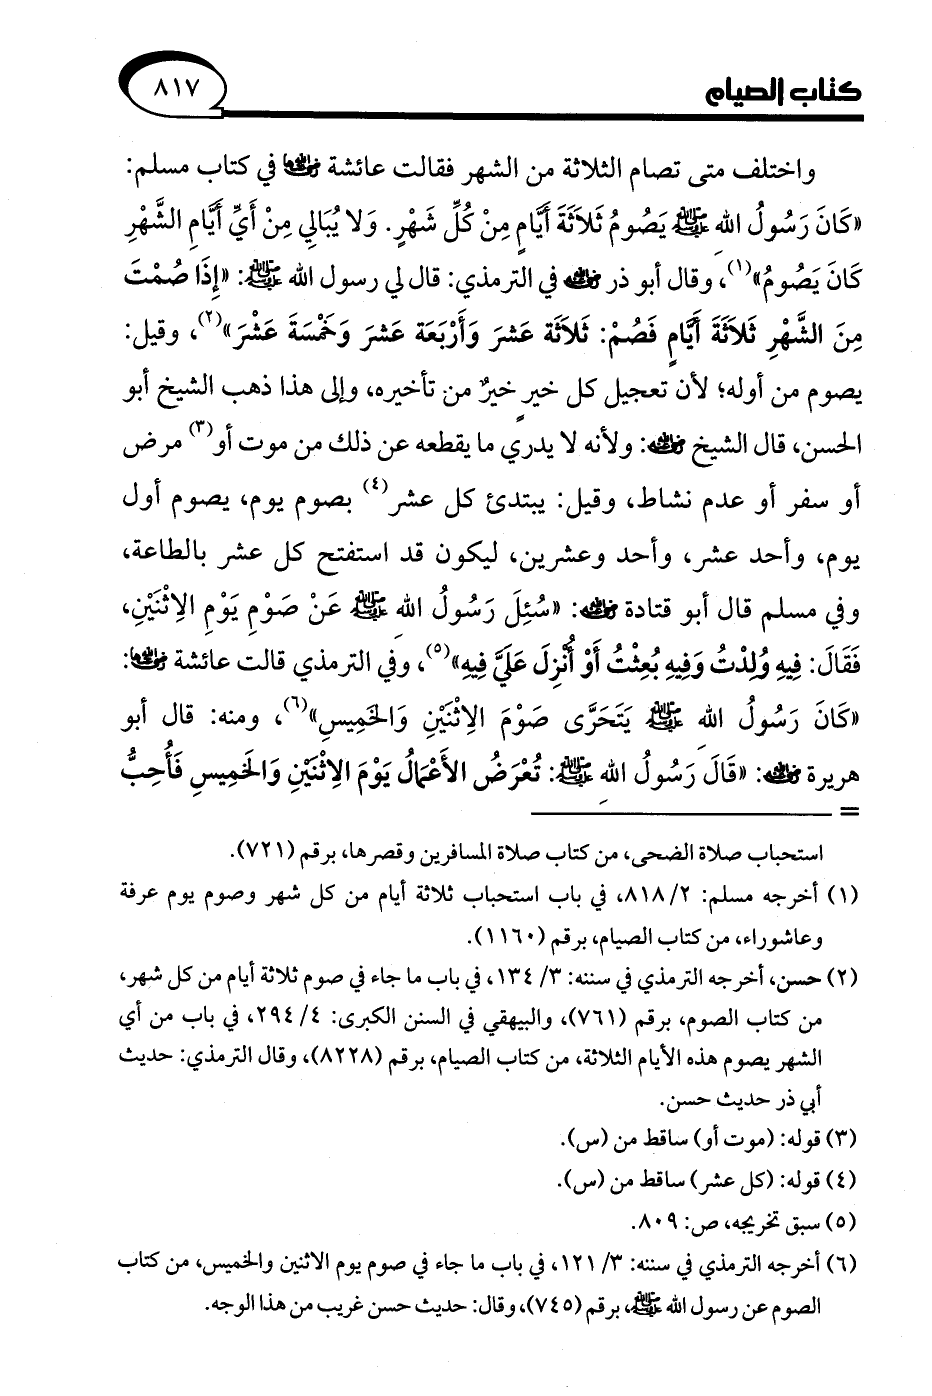 كتاب الصيام ٨١٧
واختلف متى تصام الثلاثة من الشهر فقالت عائشة رضي الله عنها في كتاب مسلم:
«كَانَ رَسُولُ اللهِ ﷺ يَصُومُ ثَلَاثَةَ أَيَّامٍ مِنْ كُلِّ شَهْرٍ. وَلا يُبَالِي مِنْ أَيِّ أَيَّامِ الشَّهْرِ
كَانَ يَصُومُ»(١)، وقال أبو ذر رضي الله عنه في الترمذي: قال لي رسول الله ﷺ: «إِذَا صُمْتَ
مِنَ الشَّهْرِ ثَلَاثَةَ أَيَّامٍ فَصُمْ: ثَلَاثَة عَشَرَ وَأَرْبَعَة عَشَرَ وَخَمْسَةَ عَشْرَ»(٢)، وقيل:
يصوم من أوله؛ لأن تعجيل كل خيرٍ خيرٌ من تأخيره، وإلى هذا ذهب الشيخ أبو
الحسن، قال الشيخ رضي الله عنه: ولأنه لا يدري ما يقطعه عن ذلك من موت أو(٣) مرض
أو سفر أو عدم نشاط، وقيل: يبتدئ كل عشر(٤) بصوم يوم، يصوم أول
يوم، وأحد عشر، وأحد وعشرين، ليكون قد استفتح كل عشر بالطاعة،
وفي مسلم قال أبو قتادة رضي الله عنه: «سُئِلَ رَسُولُ اللهِ ﷺ عَنْ صَوْمِ يَوْمِ الِاثْنَيْنِ،
فَقَالَ: فِيهِ وُلِدْتُ وَفِيهِ بُعِثْتُ أَوْ أُنْزِلَ عَلَيَّ فِيهِ»(٥)، وفي الترمذي قالت عائشة رضي الله عنها:
«كَانَ رَسُولُ اللهِ ﷺ يَتَحَرَّى صَوْمَ الِاثْنَيْنِ وَالخَمِيسِ»(٦)، ومنه: قال أبو
هريرة رضي الله عنه: «قَالَ رَسُولُ اللهِ ﷺ: تُعْرَضُ الأَعْمَالُ يَوْمَ الِاثْنَيْنِ وَالخَمِيسِ فَأُحِبُّ
=
استحباب صلاة الضحى، من كتاب صلاة المسافرين وقصرها، برقم (٧٢١).
(١) أخرجه مسلم: ٢/ ٨١٨، في باب استحباب ثلاثة أيام من كل شهر وصوم يوم عرفة
وعاشوراء، من كتاب الصيام، برقم (١١٦٠).
(٢) حسن، أخرجه الترمذي في سننه: ٣/ ١٣٤، في باب ما جاء في صوم ثلاثة أيام من كل شهر،
من كتاب الصوم، برقم (٧٦١)، والبيهقي في السنن الكبرى: ٤/ ٢٩٤، في باب من أي
الشهر يصوم هذه الأيام الثلاثة، من كتاب الصيام، برقم (٨٢٢٨)، وقال الترمذي: حديث
أبي ذر حديث حسن.
(٣) قوله: (موت أو) ساقط من (س).
(٤) قوله: (كل عشر) ساقط من (س).
(٥) سبق تخريجه، ص: ٨٠٩.
(٦) أخرجه الترمذي في سننه: ٣/ ١٢١، في باب ما جاء في صوم يوم الاثنين والخميس، من كتاب
الصوم عن رسول الله ﷺ، برقم (٧٤٥)، وقال: حديث حسن غريب من هذا الوجه.